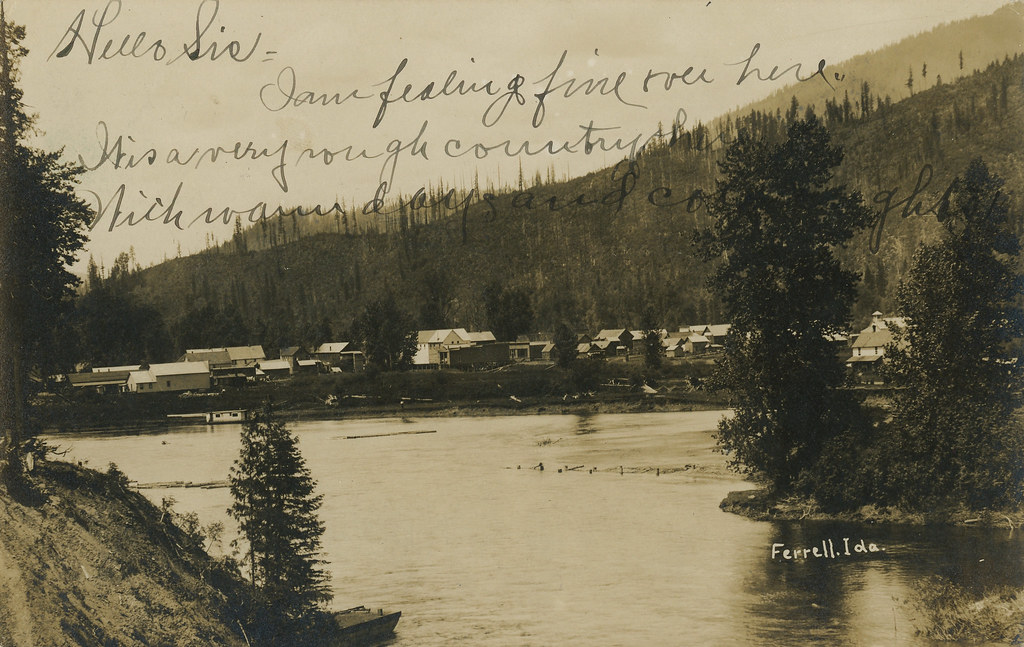 Hello Sis =
I am feeling fine over here.
It is a very rough country
With warm days and
Ferrell. Ida.